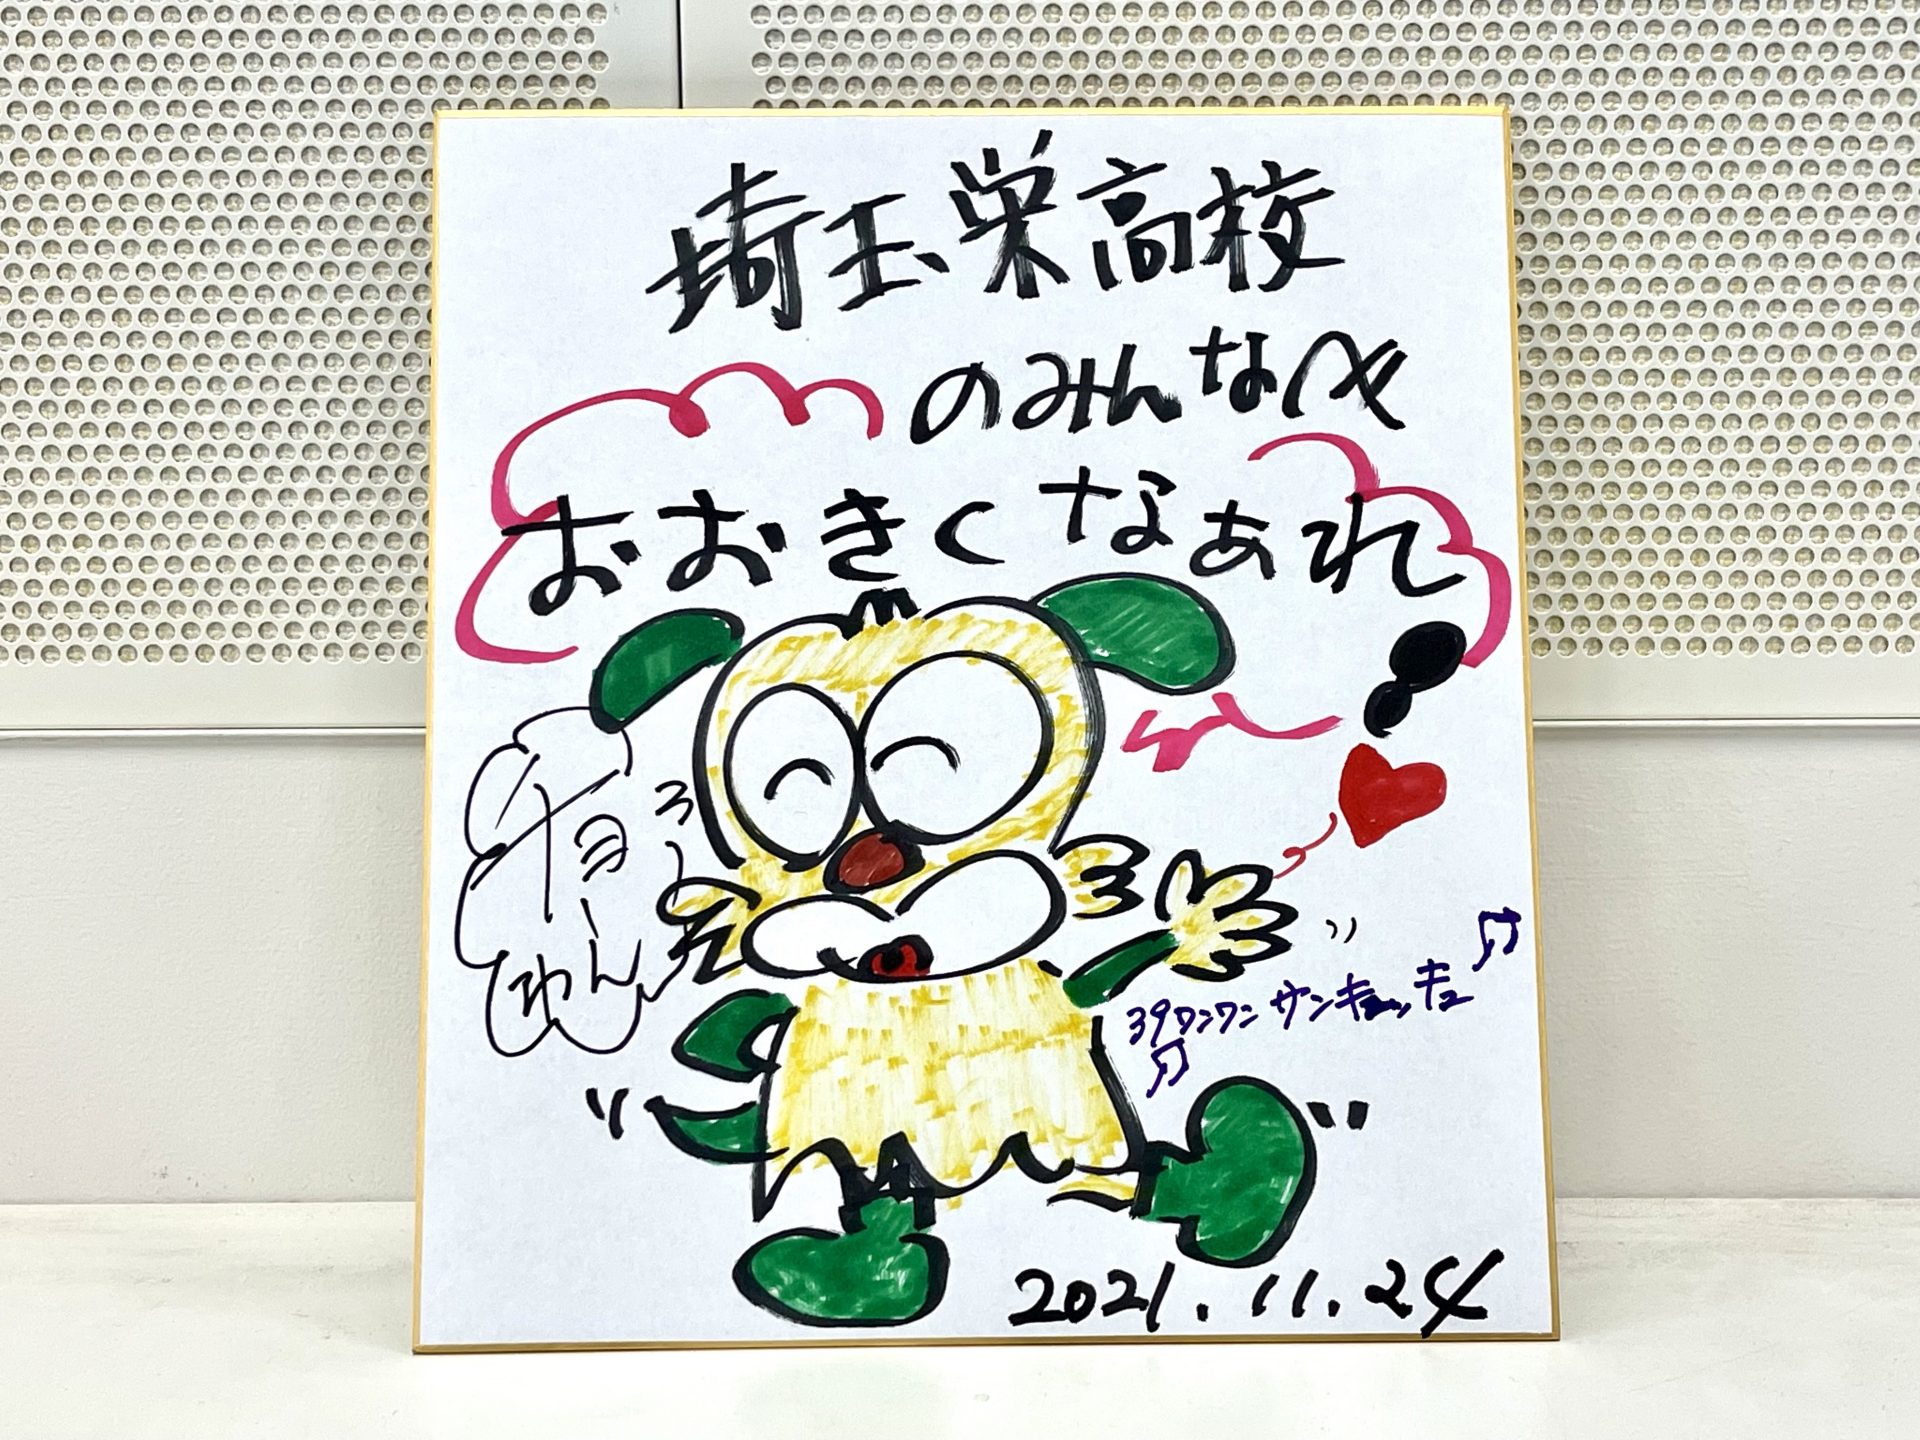 埼玉栄高校
のみんなへ
おおきくなぁれ
チョー
わん
39ワンワン サンキョーッキュ
2021.11.24